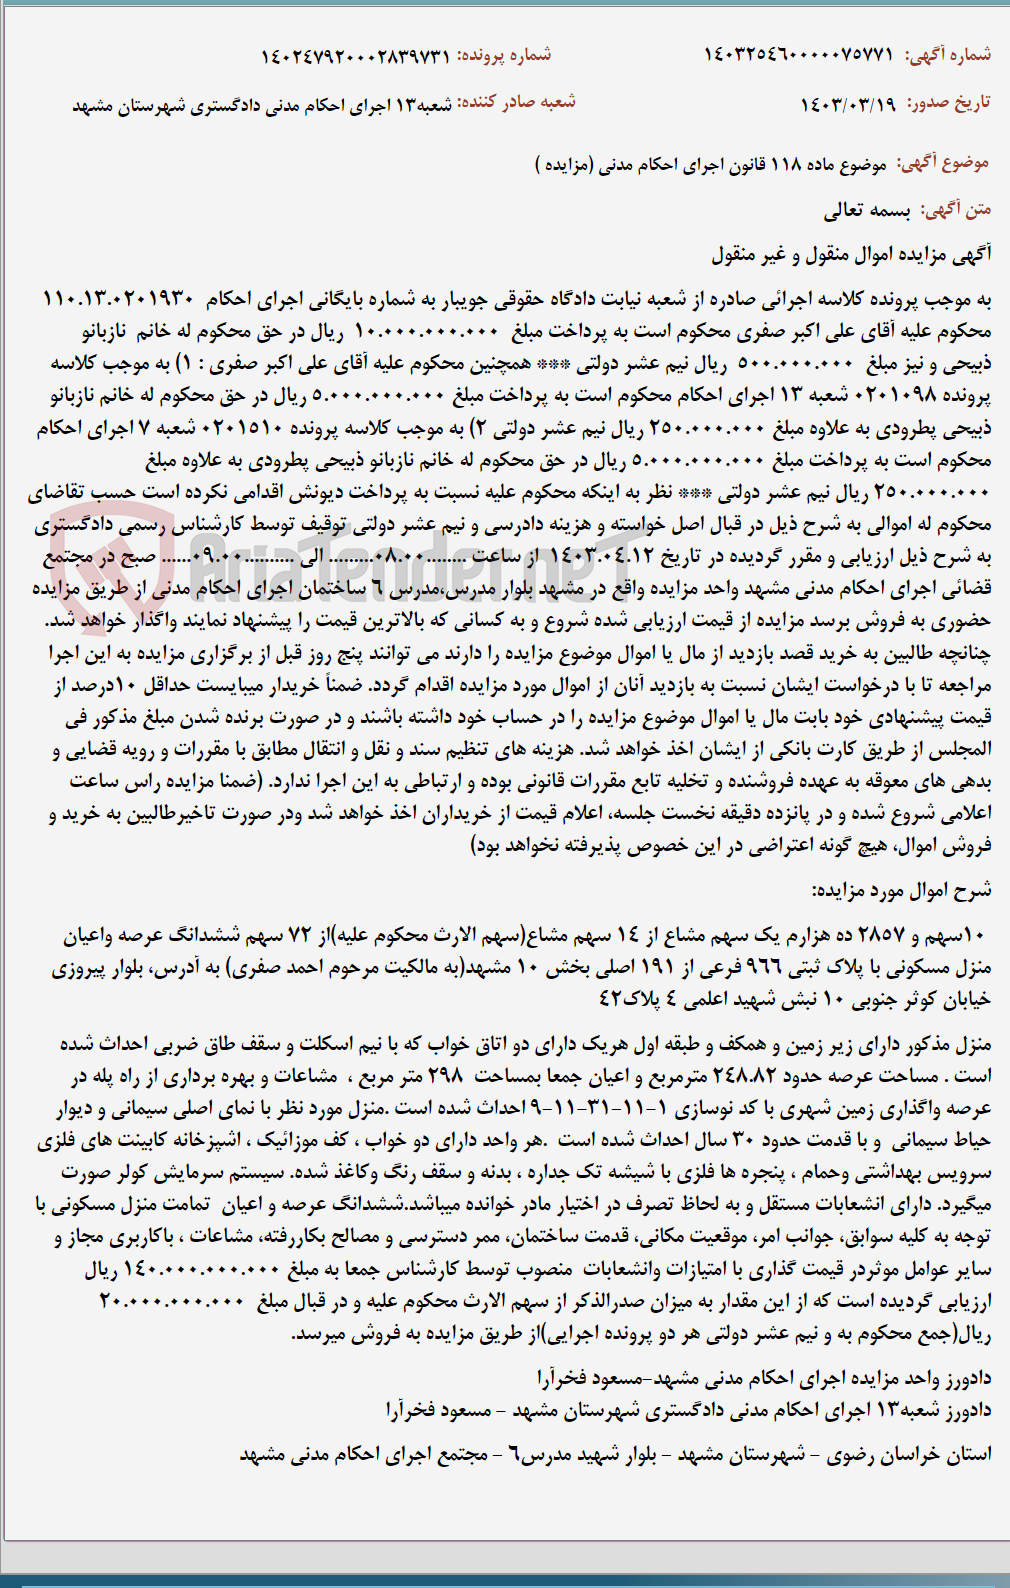 شماره آگهی: ۱۴۰۳۲۵۴۶۰۰۰۰۰۷۵۷۷۱ شماره پرونده: ۱۴۰۲۴۷۹۲۰۰۰۲۸۳۹۷۳۱
تاریخ صدور: ۱۴۰۳/۰۳/۱۹ شعبه صادر کننده: شعبه۱۳ اجرای احکام مدنی دادگستری شهرستان مشهد
موضوع آگهی: موضوع ماده ۱۱۸ قانون اجرای احکام مدنی (مزایده )
متن آگهی: بسمه تعالی
آگهی مزایده اموال منقول و غیر منقول
به موجب پرونده کلاسه اجرائی صادره از شعبه نیابت دادگاه حقوقی جویبار به شماره بایگانی اجرای احکام ۱۱۰.۱۳.۰۲۰۱۹۳۰
محکوم علیه آقای علی اکبر صفری محکوم است به پرداخت مبلغ ۱۰.۰۰۰.۰۰۰.۰۰۰ ریال در حق محکوم له خانم نازبانو
ذبیحی و نیز مبلغ ۵۰۰.۰۰۰.۰۰۰ ریال نیم عشر دولتی *** همچنین محکوم علیه آقای علی اکبر صفری : ۱) به موجب کلاسه
پرونده ۰۲۰۱۰۹۸ شعبه ۱۳ اجرای احکام محکوم است به پرداخت مبلغ ۵.۰۰۰.۰۰۰.۰۰۰ ریال در حق محکوم له خانم نازبانو
ذبیحی پطرودی به علاوه مبلغ ۲۵۰.۰۰۰.۰۰۰ ریال نیم عشر دولتی ۲) به موجب کلاسه پرونده ۰۲۰۱۵۱۰ شعبه ۷ اجرای احکام
محکوم است به پرداخت مبلغ ۵.۰۰۰.۰۰۰.۰۰۰ ریال در حق محکوم له خانم نازبانو ذبیحی پطرودی به علاوه مبلغ
۲۵۰.۰۰۰.۰۰۰ ریال نیم عشر دولتی *** نظر به اینکه محکوم علیه نسبت به پرداخت دیونش اقدامی نکرده است حسب تقاضای
محکوم له اموالی به شرح ذیل در قبال اصل خواسته و هزینه دادرسی و نیم عشر دولتی توقیف توسط کارشناس رسمی دادگستری
به شرح ذیل ارزیابی و مقرر گردیده در تاریخ ۱۴۰۳.۰۴.۱۲ از ساعت ........۰۸.۰۰........ الی ..........۰۹.۰۰...... صبح در مجتمع
قضائی اجرای احکام مدنی مشهد واحد مزایده واقع در مشهد بلوار مدرس،مدرس ۶ ساختمان اجرای احکام مدنی از طریق مزایده
حضوری به فروش برسد مزایده از قیمت ارزیابی شده شروع و به کسانی که بالاترین قیمت را پیشنهاد نمایند واگذار خواهد شد.
چنانچه طالبین به خرید قصد بازدید از مال یا اموال موضوع مزایده را دارند می توانند پنج روز قبل از برگزاری مزایده به این اجرا
مراجعه تا با درخواست ایشان نسبت به بازدید آنان از اموال مورد مزایده اقدام گردد. ضمناً خریدار میبایست حداقل ۱۰درصد از
قیمت پیشنهادی خود بابت مال یا اموال موضوع مزایده را در حساب خود داشته باشند و در صورت برنده شدن مبلغ مذکور فی
المجلس از طریق کارت بانکی از ایشان اخذ خواهد شد. هزینه های تنظیم سند و نقل و انتقال مطابق با مقررات و رویه قضایی و
بدهی های معوقه به عهده فروشنده و تخلیه تابع مقررات قانونی بوده و ارتباطی به این اجرا ندارد. (ضمنا مزایده راس ساعت
اعلامی شروع شده و در پانزده دقیقه نخست جلسه، اعلام قیمت از خریداران اخذ خواهد شد ودر صورت تاخیرطالبین به خرید و
فروش اموال، هیچ گونه اعتراضی در این خصوص پذیرفته نخواهد بود)
شرح اموال مورد مزایده:
۱۰سهم و ۲۸۵۷ ده هزارم یک سهم مشاع از ۱۴ سهم مشاع(سهم الارث محکوم علیه)از ۷۲ سهم ششدانگ عرصه واعیان
منزل مسکونی با پلاک ثبتی ۹۶۶ فرعی از ۱۹۱ اصلی بخش ۱۰ مشهد(به مالکیت مرحوم احمد صفری) به آدرس، بلوار پیروزی
خیابان کوثر جنوبی ۱۰ نبش شهید اعلمی ۴ پلاک۴۲
منزل مذکور دارای زیر زمین و همکف و طبقه اول هریک دارای دو اتاق خواب که با نیم اسکلت و سقف طاق ضربی احداث شده
است . مساحت عرصه حدود ۲۴۸.۸۲ مترمربع و اعیان جمعا بمساحت ۲۹۸ متر مربع ، مشاعات و بهره برداری از راه پله در
عرصه واگذاری زمین شهری با کد نوسازی ۱-۱۱-۳۱-۱۱-۹ احداث شده است .منزل مورد نظر با نمای اصلی سیمانی و دیوار
حیاط سیمانی و با قدمت حدود ۳۰ سال احداث شده است .هر واحد دارای دو خواب ، کف موزائیک ، اشپزخانه کابینت های فلزی
سرویس بهداشتی وحمام ، پنجره ها فلزی با شیشه تک جداره ، بدنه و سقف رنگ وکاغذ شده. سیستم سرمایش کولر صورت
میگیرد. دارای انشعابات مستقل و به لحاظ تصرف در اختیار مادر خوانده میباشد.ششدانگ عرصه و اعیان تمامت منزل مسکونی با
توجه به کلیه سوابق، جوانب امر، موقعیت مکانی، قدمت ساختمان، ممر دسترسی و مصالح بکاررفته، مشاعات ، باکاربری مجاز و
سایر عوامل موثردر قیمت گذاری با امتیازات وانشعابات منصوب توسط کارشناس جمعا به مبلغ ۱۴۰.۰۰۰.۰۰۰.۰۰۰ ریال
ارزیابی گردیده است که از این مقدار به میزان صدرالذکر از سهم الارث محکوم علیه و در قبال مبلغ ۲۰.۰۰۰.۰۰۰.۰۰۰
ریال(جمع محکوم به و نیم عشر دولتی هر دو پرونده اجرایی)از طریق مزایده به فروش میرسد.
دادورز واحد مزایده اجرای احکام مدنی مشهد-مسعود فخرآرا
دادورز شعبه۱۳ اجرای احکام مدنی دادگستری شهرستان مشهد - مسعود فخرآرا
استان خراسان رضوی - شهرستان مشهد - بلوار شهید مدرس۶ - مجتمع اجرای احکام مدنی مشهد
AriaTender.net